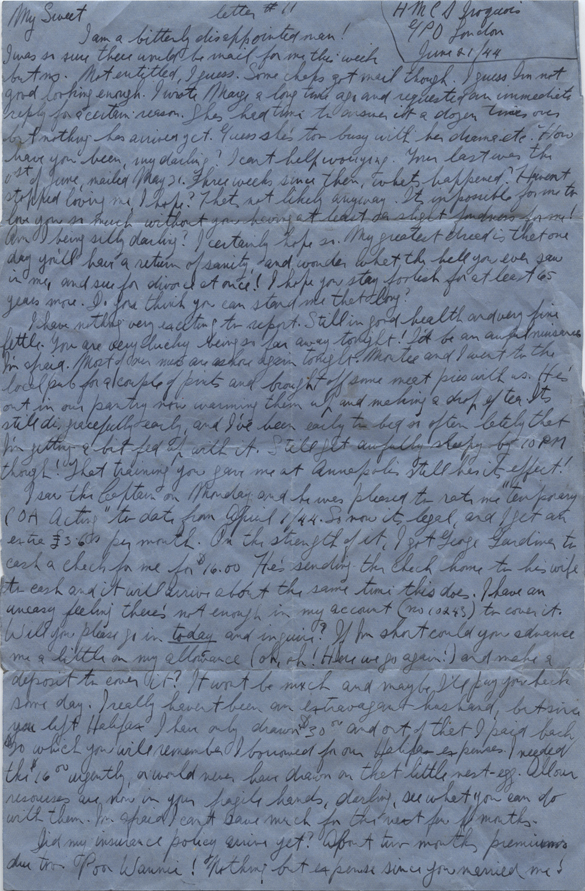 My Sweet letter # 11
HMCS Iroquois
GPO London
June 21/44
I am a bitterly disappointed man!
I was so sure there would be mail for me this week
but no. Not entitled, I guess. Some chaps got mail though. I guess I'm not
good looking enough. I wrote Marge a long time ago and requested an immediate
reply for a certain reason. She's had time to answer it a dozen times over
but nothing has arrived yet. Guess she's too busy with her How
have you been, my darling? I can't help worrying. Your last was the
1st of June, mailed May 21. Three weeks since then, what's happened? Haven't
stopped loving me I hope? That, not likely anyway. It's impossible for me to
love you so much without you having at least a slight fondness for me!
Am I being silly darling? I certainly hope so. My greatest dread is that one
day you'll have a return of sanity and wonder what the hell you ever saw
in me, and sue for divorce at once! I hope you stay foolish for at least 65
years more. Do you think you can stand me that long?
I have nothing very exciting to report. Still in good health and very fine
fettle. You are very lucky being so far away tonight! I'd be an awful nuisance
I'm afraid. Most of our mess are ashore again tonight. Montee and I went to the
local pub for a couple of pints and brought off some meat pies with us. He's
out in our pantry now warming them up and making a drop of tea. It's
still disgracefully early, and I've been early to bed so often lately that
I'm getting a bit fed up with it. Still get awfully sleepy by 10 PM
though! That training you gave me at Annapolis still has its effect!
I saw the Captain on Monday and he was pleased to rate me "temporary
COA Acting" to date from April 1/44. So now it's legal, and I get an
extra $36 per month. On the strength of it, I got George Gardiner to
cash a check for me for $16.00 He's sending the check home to his wife
to cash and it will arrive about the same time this does. I have an
uneasy feeling there's not enough in my account (no 10293) to cover it.
Will you please go in today and inquire? If I'm short could you advance
me a little on my allowance (oh, oh! Here we go again!) and make a
deposit to cover it? It won't be much and maybe I'll pay you back
some day. I really haven't been an extravagant husband, but since
you left Halifax I have only drawn $30.00 and out of that I paid back
which you will remember I borrowed for our Halifax expenses. I needed
this $16.00 urgently, or would never have drawn on that little nest-egg. All our
resources are now in your fragile hands, darling, see what you can do
with them. I'm afraid I can't save much for the next few months.
Did my insurance policy arrive yet? About two months premiums
due too. Poor Wannie! Nothing but expense since you married me!